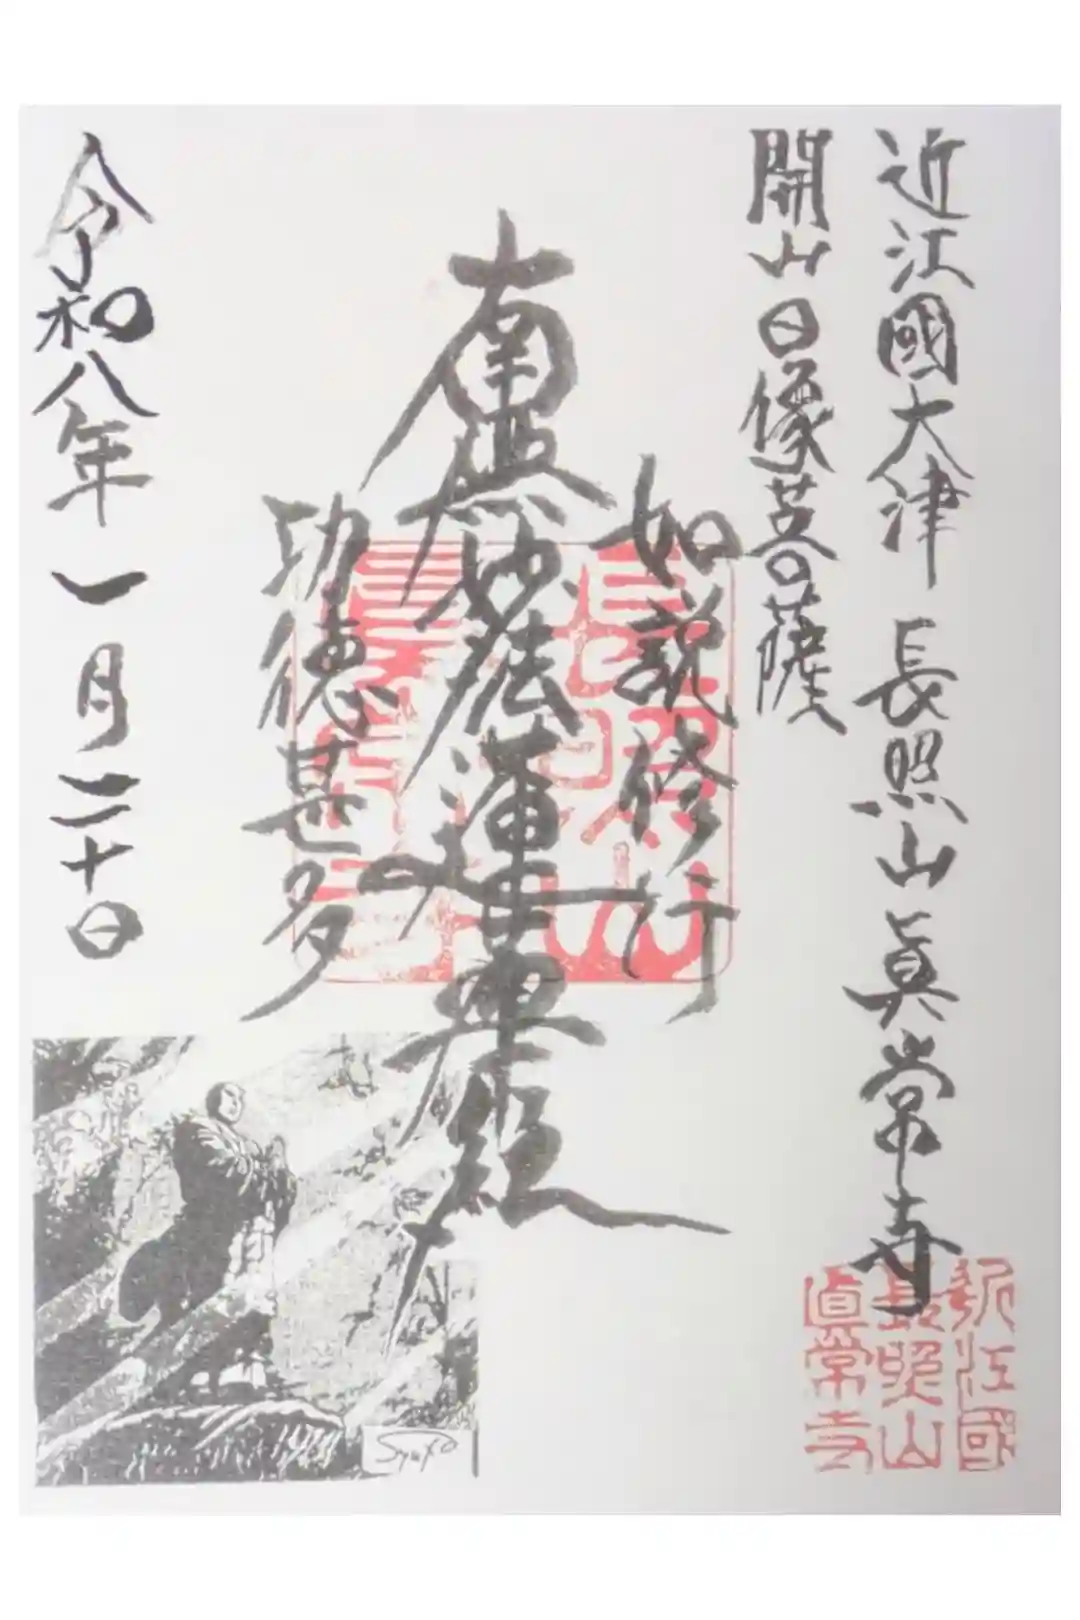 近江國大津 長照山 眞常寺
開山日像菩薩
如説修行
南無妙法蓮華経
功徳甚多
令和八年一月二十日
近江國
長照山
眞常寺